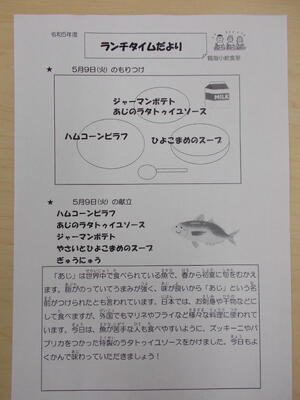 令和5年度
ランチタイムだより
★ 5月9日(火) のもりつけ
ジャーマンポテト
あじのラタトゥイユソース
MILK
ハムコーンピラフ
ひよこまめのスープ
★ 5月9日(火) の献立
ハムコーンピラフ
あじのラタトゥイユソース
ジャーマンポテト
やさいとひよこまめのスープ
ぎゅうにゅう
「あじ」は世界中で食べられている魚で、春から初夏に旬をむかえ
ます。脂がのっていてうまみが強く、味が良いから「あじ」という名
前がつけられたとも言われています。日本では、お刺身や干物などに
して食べますが、外国でもマリネやフライなど様々な料理に使われて
います。今日は、魚が苦手な人も食べやすいように、ズッキーニやパ
プリカをつかった特製のラタトゥイユソースをかけました。今日もよ
くかんで味わっていただきましょう！